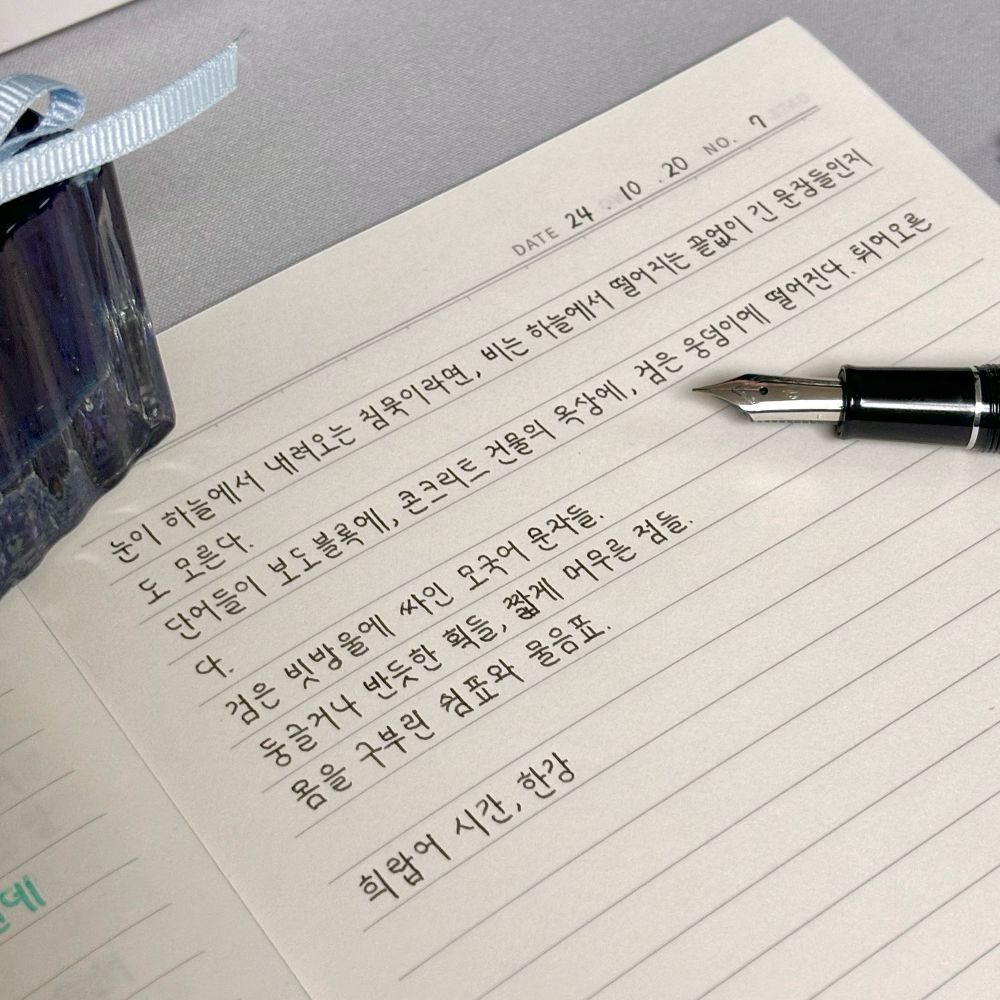 DATE 24 . 10 . 20 NO. 7
눈이 하늘에서 내려오는 침묵이라면, 비는 하늘에서 떨어지는 끝없이 긴 문장들인지
도 모른다.
단어들이 보도블록에, 콘크리트 건물의 옥상에, 검은 웅덩이에 떨어진다. 튀어오른
다.
검은 빗방울에 싸인 모국어 문자들.
둥글거나 반듯한 획들, 짧게 머무른 점들.
몸을 구부린 쉼표와 물음표.
희랍어 시간, 한강